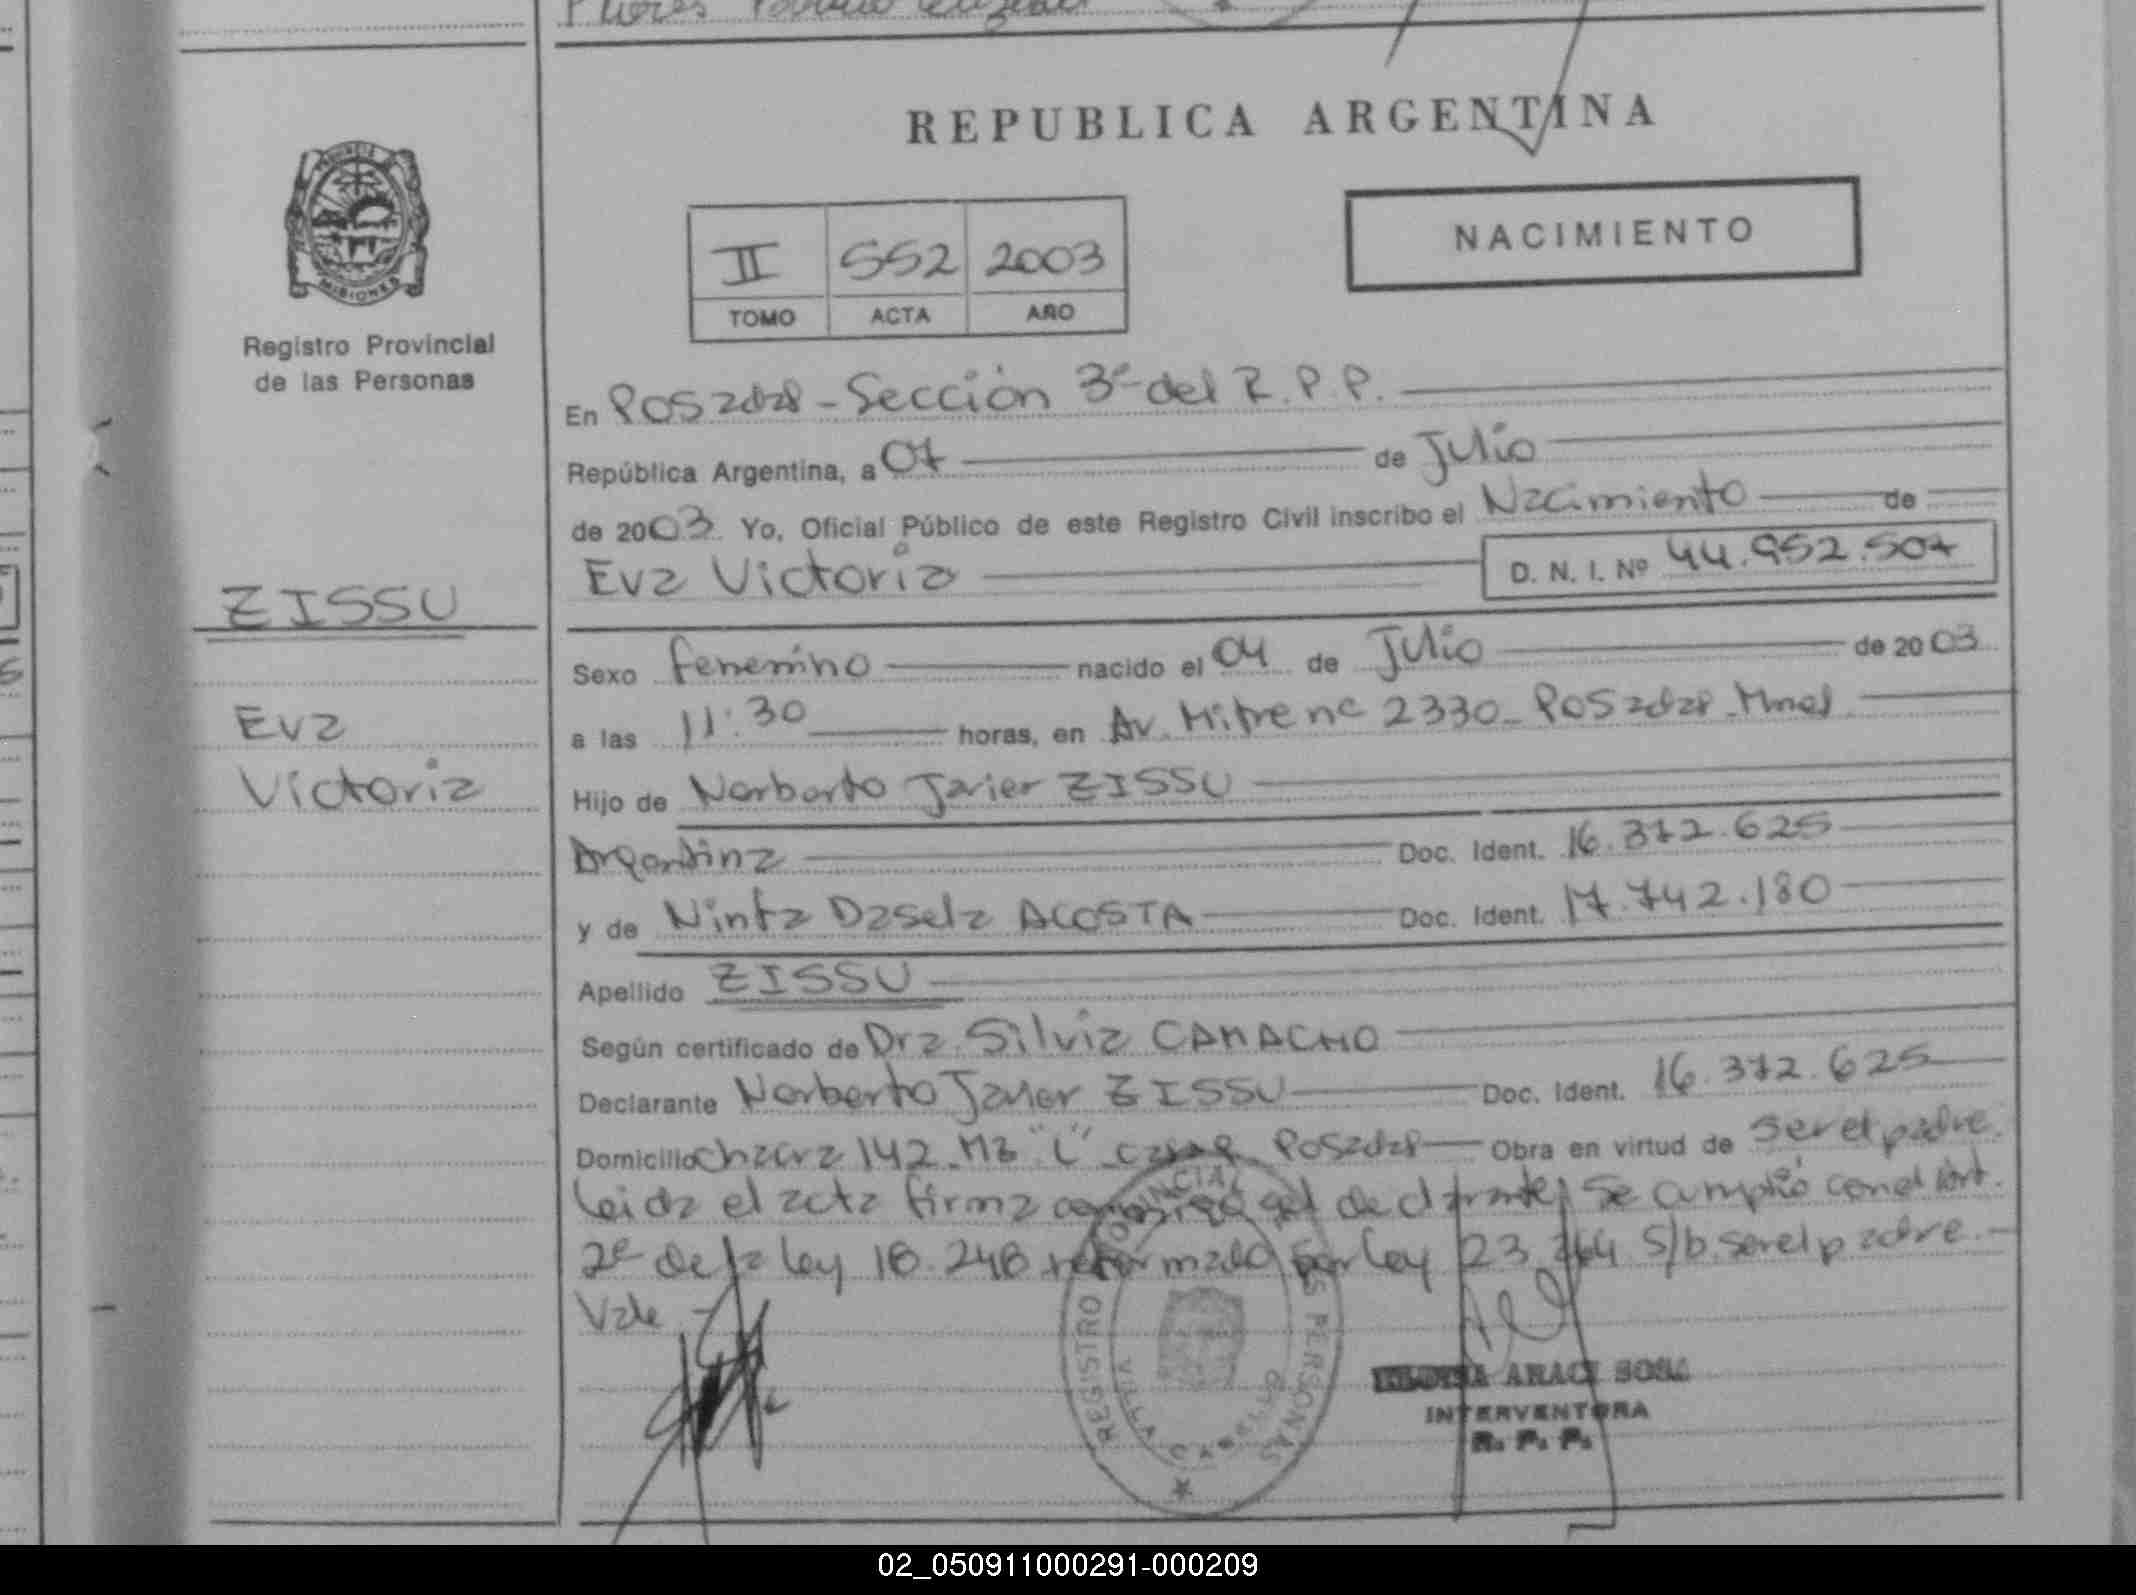 REPUBLICA ARGENTINA
NACIMIENTO
II 552 2003
TOMO ACTA AÑO
PROVINCIA DE
MISIONES
Registro Provincial
de las Personas
En Posadas - Sección 3ª del R.P.P.
República Argentina, a 07 de Julio
de 2003 Yo, Oficial Público de este Registro Civil inscribo el Nacimiento de
Eva Victoria D. N. I. Nº 44.952.507
ZISSU
Eva
Victoria
Sexo femenino nacido el 04 de Julio de 2003
a las 11:30 horas, en Av. Mitre nº 2330 - Posadas - Mnes
Hijo de Norberto Javier ZISSU
Argentina Doc. Ident. 16.372.625
y de Ninfa Dasela ACOSTA Doc. Ident. 17.742.180
Apellido ZISSU
Según certificado de Dra. Silvia CAMACHO
Declarante Norberto Javier ZISSU Doc. Ident. 16.372.625
Domicilio Chacra 142 - Mz "L" - casa Posadas Obra en virtud de ser el padre.
Leida el acta firma conmigo el declarante, Se cumplió con el Art.
2º de la ley 18.248 reformado por ley 23.264 S/b. ser el padre.
Vale
REGISTRO PROVINCIAL DE LAS PERSONAS
VILLA CABELLO
ARACI SOSA
INTERVENTORA
R. P. P.
02_050911000291-000209